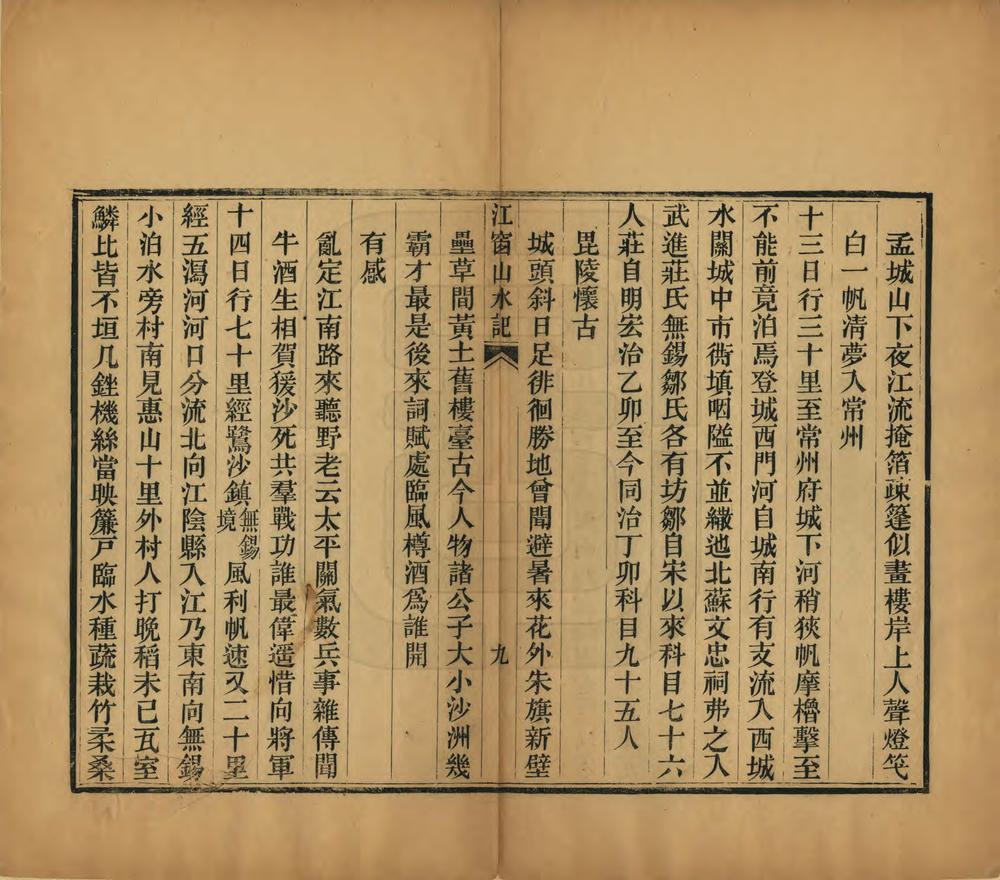 孟城山下夜江流掩箔疎篷似畫樓岸上人聲燈笺
白一帆淸夢入常州
十三日行三十里至常州府城下河稍狹帆摩櫓擊至
不能前竟泊焉登城西門河自城南行有支流入西城
水關城中市衖塡咽隘不並繖迆北蘇文忠祠弗之入
武進莊氏無錫鄒氏各有坊鄒自宋以來科目七十六
人莊自明宏治乙卯至今同治丁卯科目九十五人
毘陵懷古
城頭斜日足徘徊勝地曾聞避暑來花外朱旗新壁
江窗山水記 九
壘草間黃土舊樓臺古今人物諸公子大小沙洲幾
霸才最是後來詞賦處臨風樽酒爲誰開
有感
亂定江南路來聽野老云太平關氣數兵事雜傳聞
牛酒生相賀猨沙死共羣戰功誰最偉遥惜向將軍
十四日行七十里經鷺沙鎭無錫境風利帆速又二十里
經五瀉河河口分流北向江陰縣入江乃東南向無錫
小泊水旁村南見惠山十里外村人打晚稻未已瓦室
鱗比皆不垣几銼機絲當映簾戸臨水種蔬栽竹柔桑